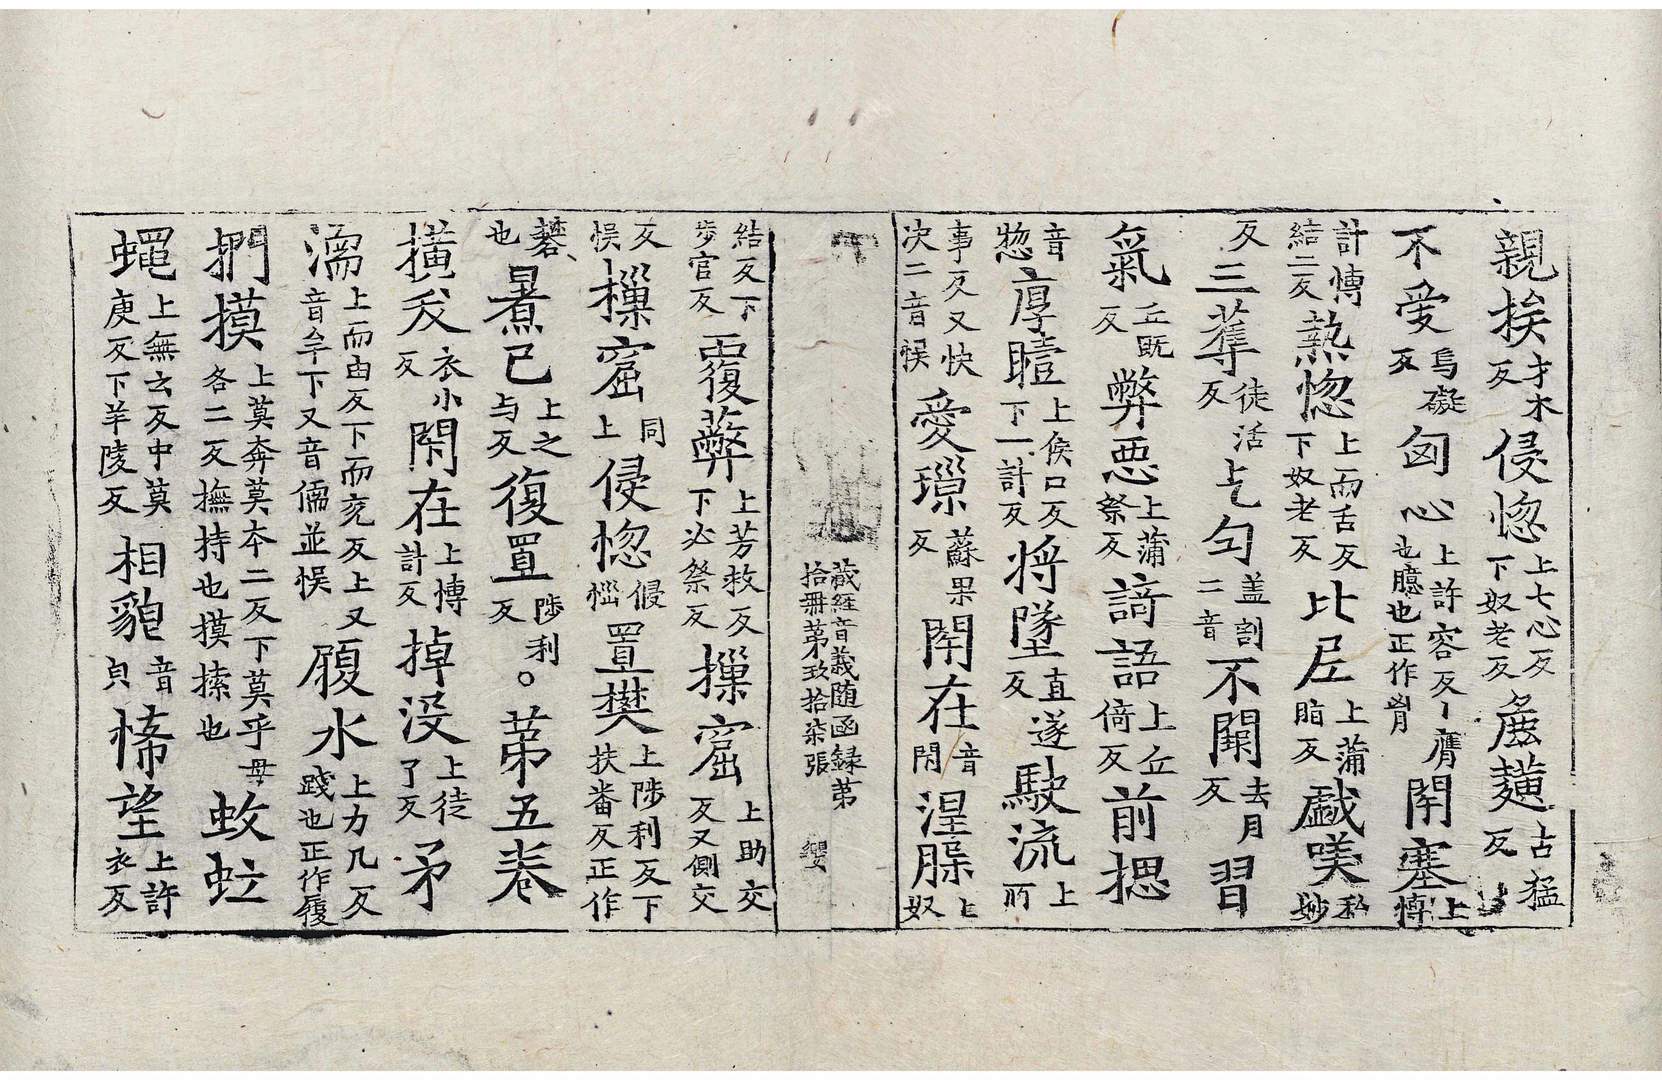 親挨才木反侵惚上七心反下奴老反麁䵃古猛反
不愛烏礙反匈心上許容反丶膺也臆也正作胷閇塞上博
計愽結二反𤍠惚上而舌反下奴老反比𡰱上蒲脂反戱𠸍私妙
反三䕶徒活反𠧒匂盖割二音不闃去月反習
氣丘既反弊惡上蒲祭反謌語上丘倚反前揌
音惣厚曀上侯口反下一計反将墜直遂反駛流上所
事反又快决二音悮愛璅蘇果反閇在音閇涅䐉上奴
藏經音義随函録苐拾冊苐玖拾柒張 㜲
結反下步官反覆蔽上芳救反下必祭反摷窟上助交反又側交
反悮樔窟同上侵惚㑴惱置樊上陟利反下扶畨反正作
礬也㬠已上之与反復置陟利反。苐五卷
撗犮衣小反閇在上博計反掉没上徒了反矛
濡上而由反下而兖反上又音𠦑下又音儒並悮㞋水上力几反踐也正作履
捫摸上莫奔莫本二反下莫乎母各二反撫持也摸㩹也蚊䖟
蠅上無云反中莫庚反下羊陵反相貌音皃悕望上許衣反